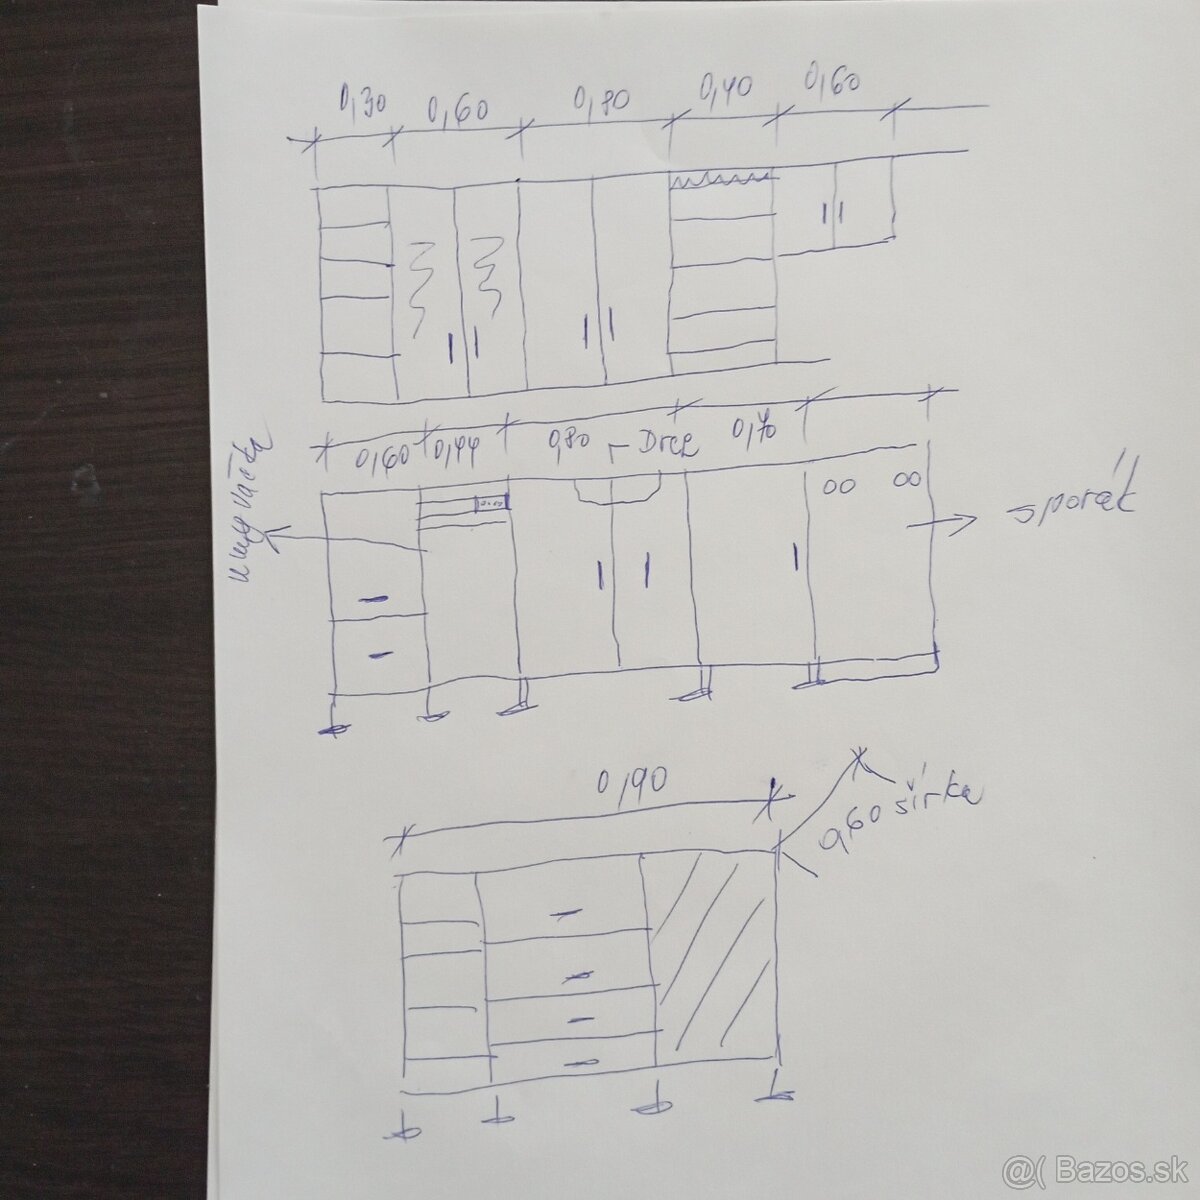 0,30 0,60 0,80 0,40 0,60
0,60 0,44 0,80 - Drez 0,70
umyvačka
sporák
0,90
0,60 šírka
@( Bazos.sk